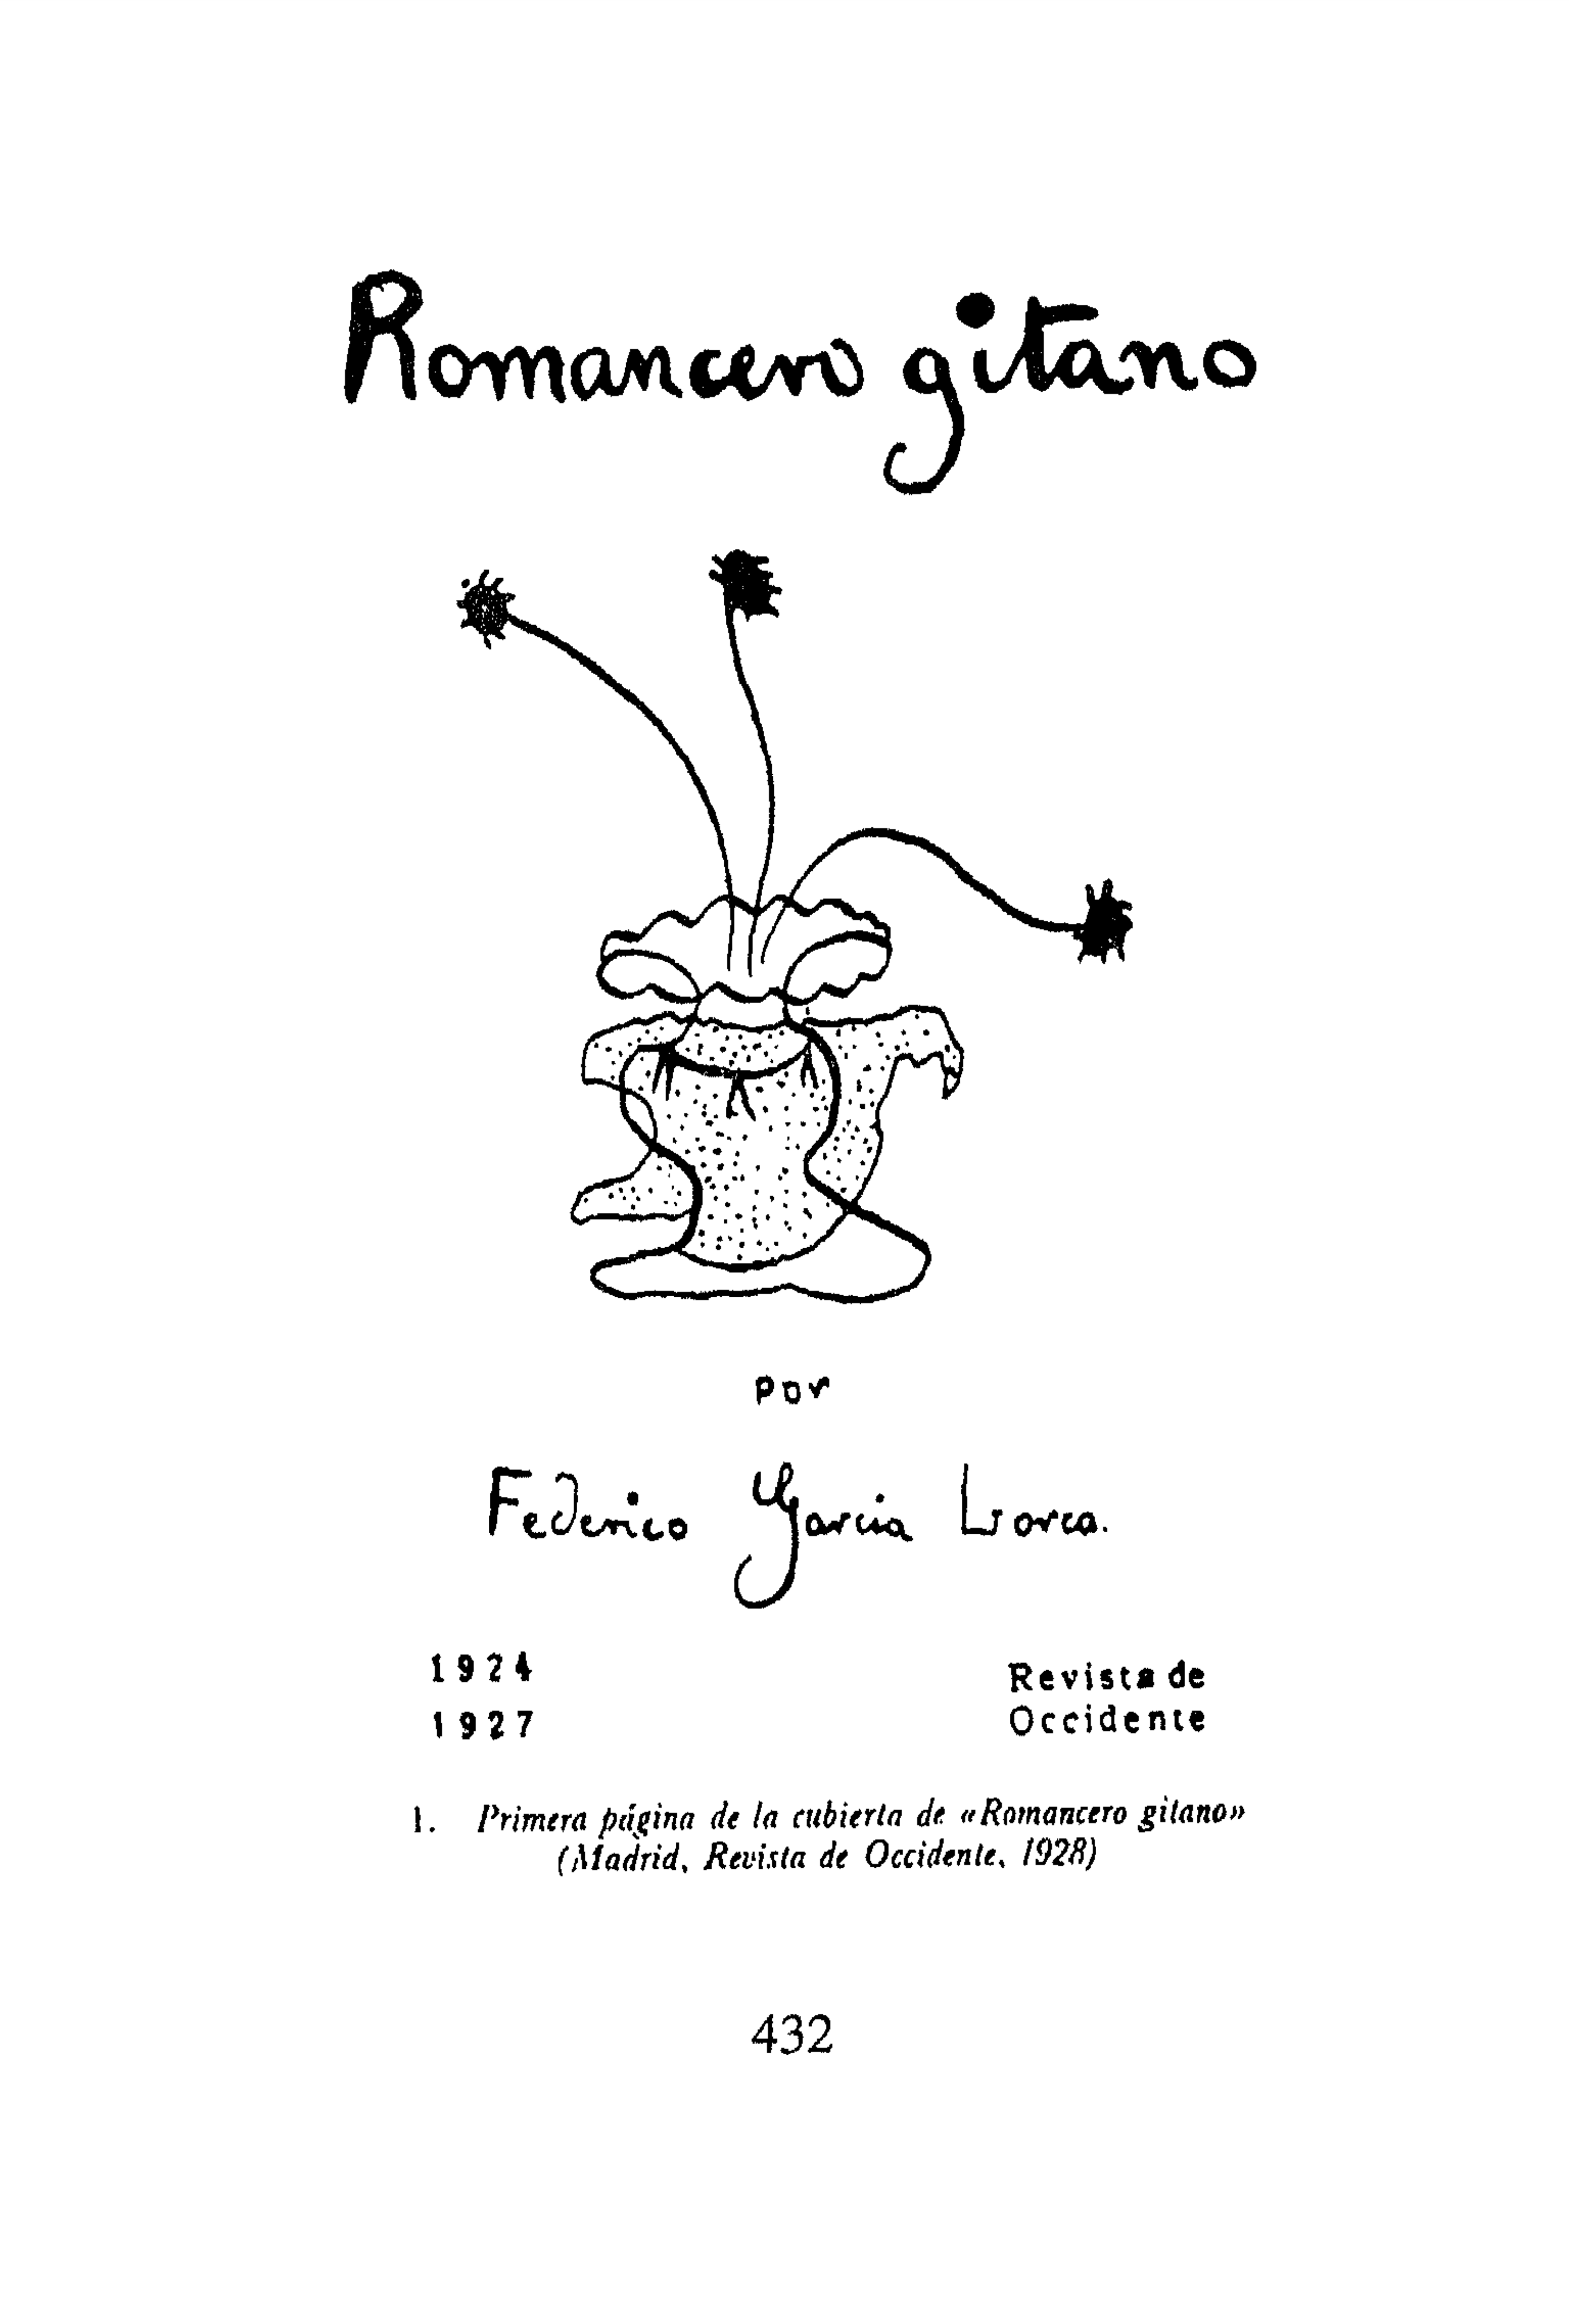 Romancero gitano
por
Federico Garcia Lorca.
1924
1927
Revista de
Occidente
1. Primera página de la cubierta de «Romancero gitano»
(Madrid, Revista de Occidente, 1928)
432